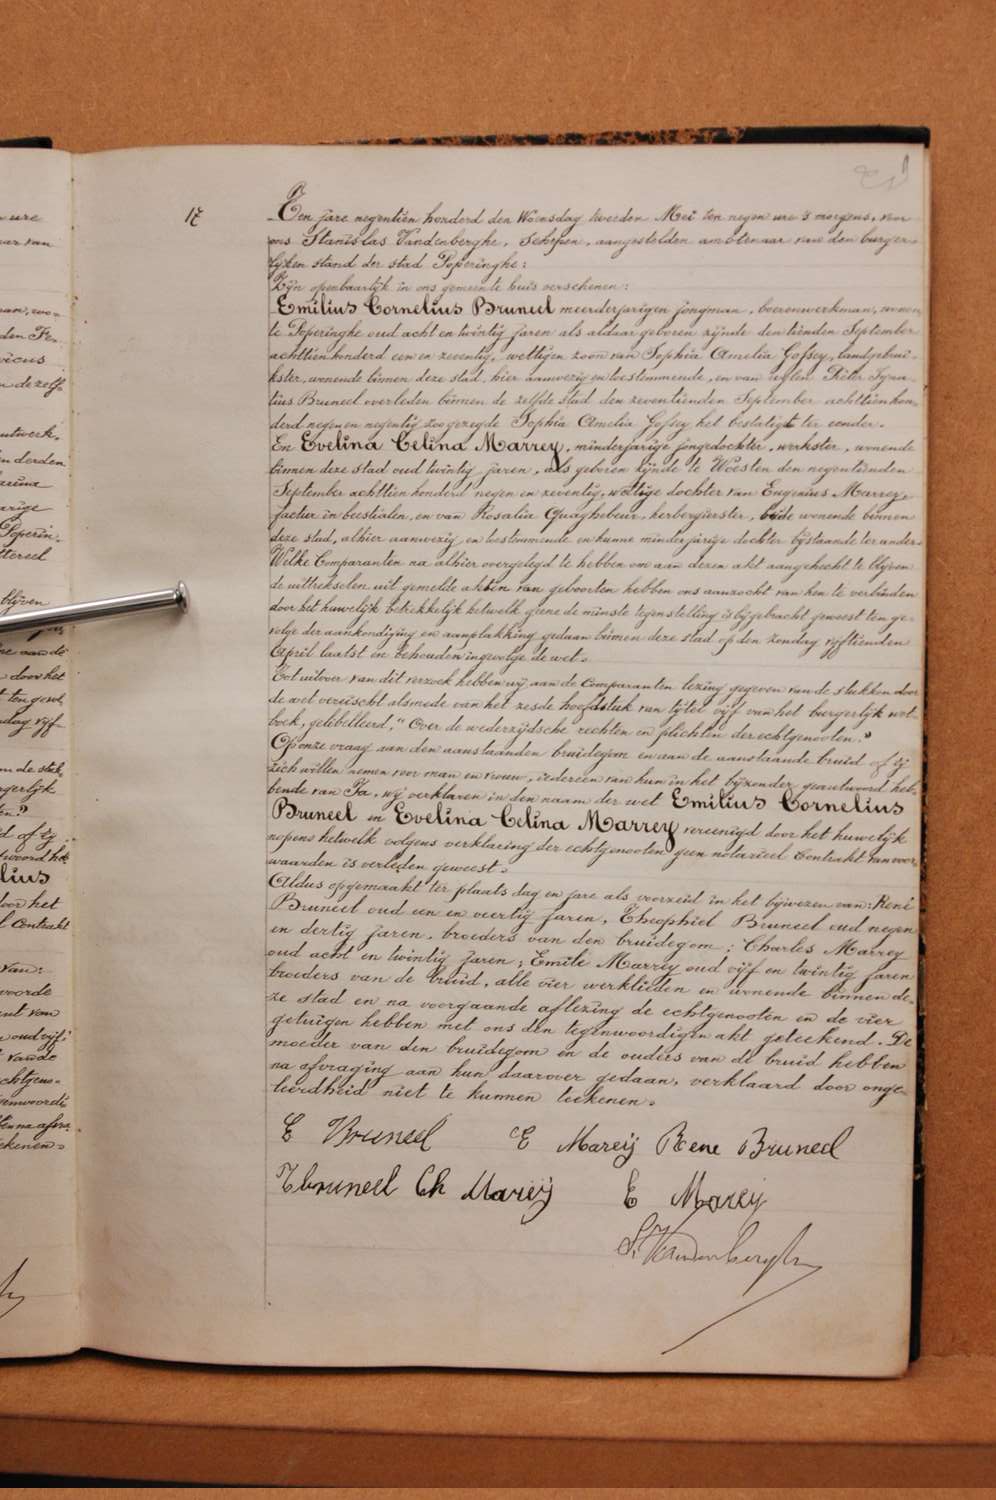 17
Ten jare negentien honderd den Woensdag tweeden Mei ten negen ure 's morgens, voor
ons Stanislas Vandenberghe, Schepen, aangestelden ambtenaar van den burger-
lijken stand der stad Poperinghe:
Zijn openbaarlijk in ons gemeente huis verschenen:
Emilius Cornelius Bruneel meerderjarigen jongman, boerenwerkman, wonen-
te Poperinghe oud acht en twintig jaren als aldaar geboren zijnde den tienden September
achttien honderd een en zeventig, wettigen zoon van Sophia Amelia Gossey, landgebrui-
kster, wonende binnen deze stad, hier aanwezig en toestemmende, en van wijlen Pieter Igna-
tius Bruneel overleden binnen de zelfde stad den zeventienden September achttien hon-
derd negen en negentig zoo gezegde Sophia Amelia Gossey het bestatigt ter eender.
En Evelina Celina Marrey, minderjarige jongedochter, werkster, wonende
binnen deze stad oud twintig jaren, als geboren zijnde te Woesten den negentienden
September achttien honderd negen en zeventig, wettige dochter van Eugenius Marrey,
facteur in beestialen, en van Rosalia Quaghebeur, herbergierster, beide wonende binnen
deze stad, alhier aanwezig, en toestemmende en hunne minderjarige dochter bijstaande ter ander-
Welke Comparanten na alhier overgelegd te hebben om aan dezen akt aangehecht te blijven
de uittrekselen uit gemelde akten van geboorten hebben ons aanzocht van hen te verbinden
door het huwelijk betrekkelijk hetwelk geene de minste tegenstelling is bijgebracht geweest ten ge-
volge der aankondiging en aanplakking gedaan binnen deze stad op den zondag vijftienden
April laatst en behouden ingevolge de wet.
Tot uitvoer van dit verzoek hebben wij aan de Comparanten lezing gegeven van de stukken door
de wet vereischt alsmede van het zesde hoofdstuk van tijtel vijf van het burgerlijk wet-
boek, getitelleerd, "Over de wederzijdsche rechten en plichten der echtgenooten."
Op onze vraag aan den aanstaanden bruidegom en aan de aanstaande bruid of zij
zich willen nemen voor man en vrouw, iedereen van hun in het bijzonder geantwoord heb-
bende van Ja, wij verklaren in den naam der wet Emilius Cornelius
Bruneel en Evelina Celina Marrey vereenigd door het huwelijk
nopens hetwelk volgens verklaring der echtgenooten geen notarieel Contrakt van voor-
waarden is verleden geweest.
Aldus opgemaakt ter plaats dag en jare als voorzeid in het bijwezen van: René
Bruneel oud een en veertig jaren, Theophiel Bruneel oud negen
en dertig jaren, broeders van den bruidegom; Charles Marrey
oud acht en twintig jaren; Emile Marrey oud vijf en twintig jaren
broeders van de bruid, alle vier werklieden en wonende binnen de-
ze stad en na voorgaande aflezing de echtgenooten en de vier
getuigen hebben met ons den tegenwoordigen akt geteekend. De
moeder van den bruidegom en de ouders van de bruid hebben
na afvraging aan hun daarover gedaan, verklaard door onge-
leerdheid niet te kunnen teekenen.
E Bruneel E Mareij Rene Bruneel
T bruneel Ch Mareij E Marey
S. Vandenberghe